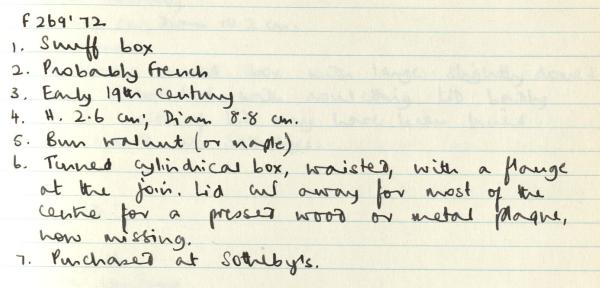 F 269'72
1. Snuff box
2. Probably French
3. Early 19th century
4. H. 2.6 cm; Diam 8.8 cm.
5. Burr walnut (or maple)
6. Turned cylindrical box, waisted, with a flange
at the join. Lid cut away for most of the
centre for a pressed wood or metal plaque,
now missing.
7. Purchased at Sotheby's.